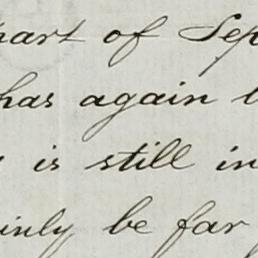 part of Sep
has again
is still in
inly be far